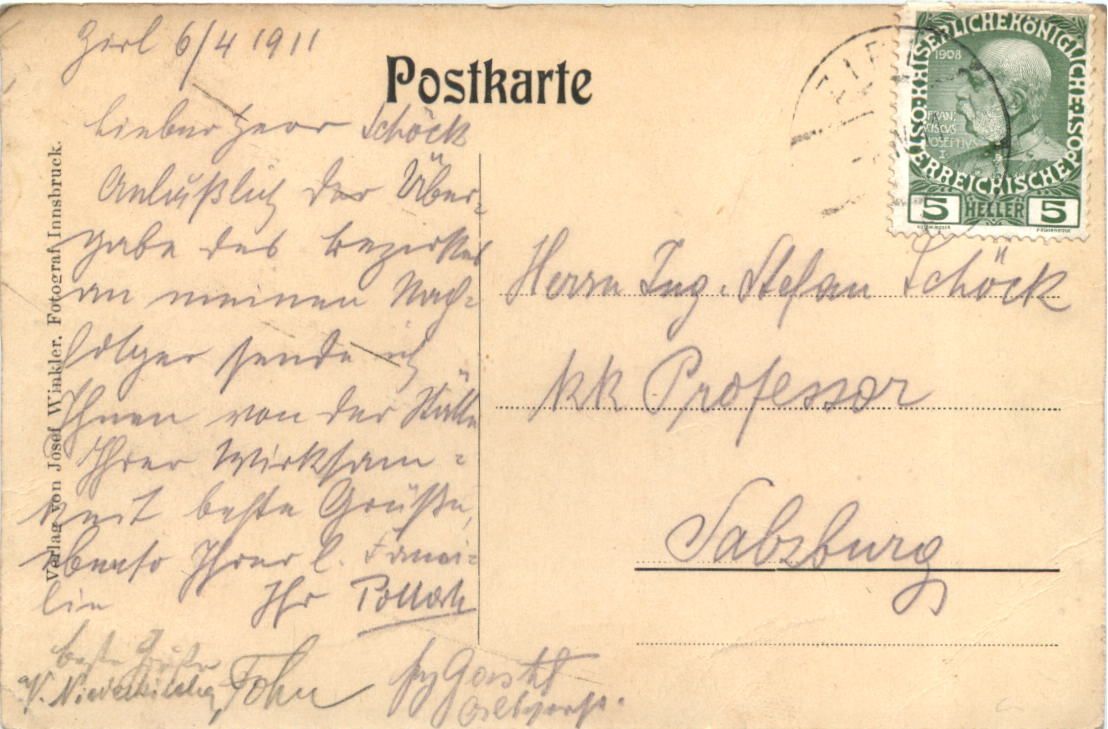 Zirl 6/4 1911
Postkarte
Lieber Herr Schöck
Anläßlich der Über-
gabe des Bezirkes
an meinen Nach-
folger sende ich
Ihnen von der Stätte
Ihrer Wirksam-
keit beste Grüße,
ebenso Ihrer l. Fami-
lie Ihr Pollack
beste Grüße
Verlag von Josef Winkler, Fotograf, Innsbruck.
KAISERLICHE KÖNIGLICHE
ÖSTERREICHISCHE POST
1908
FRAN
CISCVS
IOSEPHVS
I
5 HELLER 5
Herrn Ing. Stefan Schöck
kk Professor
Salzburg